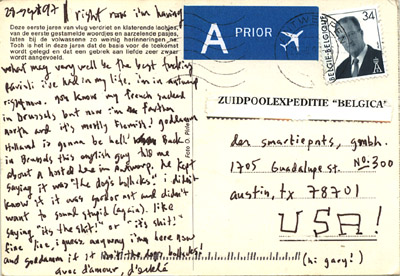 29-sept-97 right now i'm having
Deze eerste jaren van vlug verdriet en klaterende lachjes,
van de eerste gestamelde woordjes en aarzelende pasjes,
laten bij de volwassene zo weinig herinneringen na.
Toch is het in deze jaren dat de basis voor de toekomst
wordt gelegd en dat een gebrek aan liefde zeer zwaar
wordt aangevoeld.
what may very well be the best
ravioli i've had in my life. i'm in antwerp
right now. you know my french sucked
in Brussels but now i'm farther
north and it's mostly Flemish! goddamn
Holland is gonna be hell. Back
in Brussels this english guy told me
about a hotel here in Antwerp. he kept
saying it was "the dog's bullocks". i didn't
know if it was good or not and didn't
want to sound stupid (again). like
saying "it's the shit!" or "it's shit!"
fine line, i guess. anyway i'm here now
and goddamn if it isn't the dog's bullocks!
avec d'amour,
A PRIOR
BELGIE-BELGIQUE
34
ZUIDPOOLEXPEDITIE "BELGICA"
Foto O.
der smartiepnts, gmbh.
1705 Guadalupe st. No: 300
austin, tx 78701
USA!
(hi gary!)